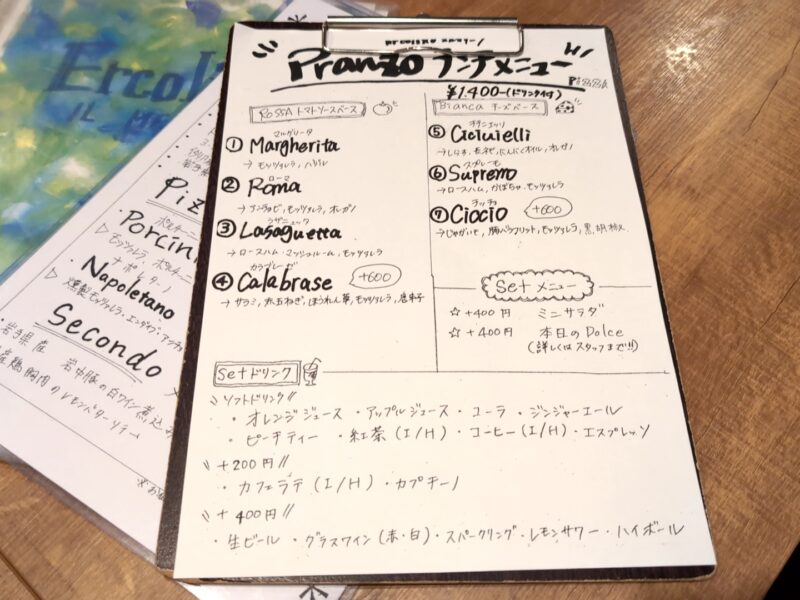 Pranzo ランチメニュー
PIZZA
¥1.400-(ドリンク付)
ROSSA トマトソースベース
マルゲリータ
① Margherita
→ モッツァレラ, バジル
ローマ
② Roma
→ アンチョビ, モッツァレラ, オレガノ
ラザニェッタ
③ Lasaguetta
→ ロースハム・マッシュルーム, モッツァレラ
カラブレーゼ
④ Calabrase +600
→ サラミ, 赤玉ねぎ, ほうれん草, モッツァレラ, 唐辛子
Bianca チーズベース
チチニエッリ
⑤ Ciciuielli
→ しらす, 長ネギ, にんにくオイル, オレガノ
スプレーモ
⑥ Supremo
→ ロースハム, かぼちゃ, モッツァレラ
チョッチョ
⑦ Ciocio +600
→ じゃがいも, 豚バラフリット, モッツァレラ, 黒胡椒
Set メニュー
☆ +400円 ミニサラダ
☆ +400円 本日のDolce
(詳しくはスタッフまで!!)
Set ドリンク
\\ソフトドリンク//
・オレンジジュース ・アップルジュース ・コーラ ・ジンジャーエール
・ピーチティー ・紅茶(I/H) ・コーヒー(I/H) ・エスプレッソ
\\+200円//
・カフェラテ(I/H) ・カプチーノ
\\+400円//
・生ビール ・グラスワイン(赤・白) ・スパークリング ・レモンサワー ・ハイボール
Erco
Piz
ポルチーニ
・Porcin
▷ モッツァレラ, ポルチーニ
ナポレターノ
・Napoletano
▷ 燻製モッツァレラ, エンダイブ, アンチョ
Secondo
・岩手県産 岩中豚の白ワイン煮込
産鶏胸肉のレモンバターソテー